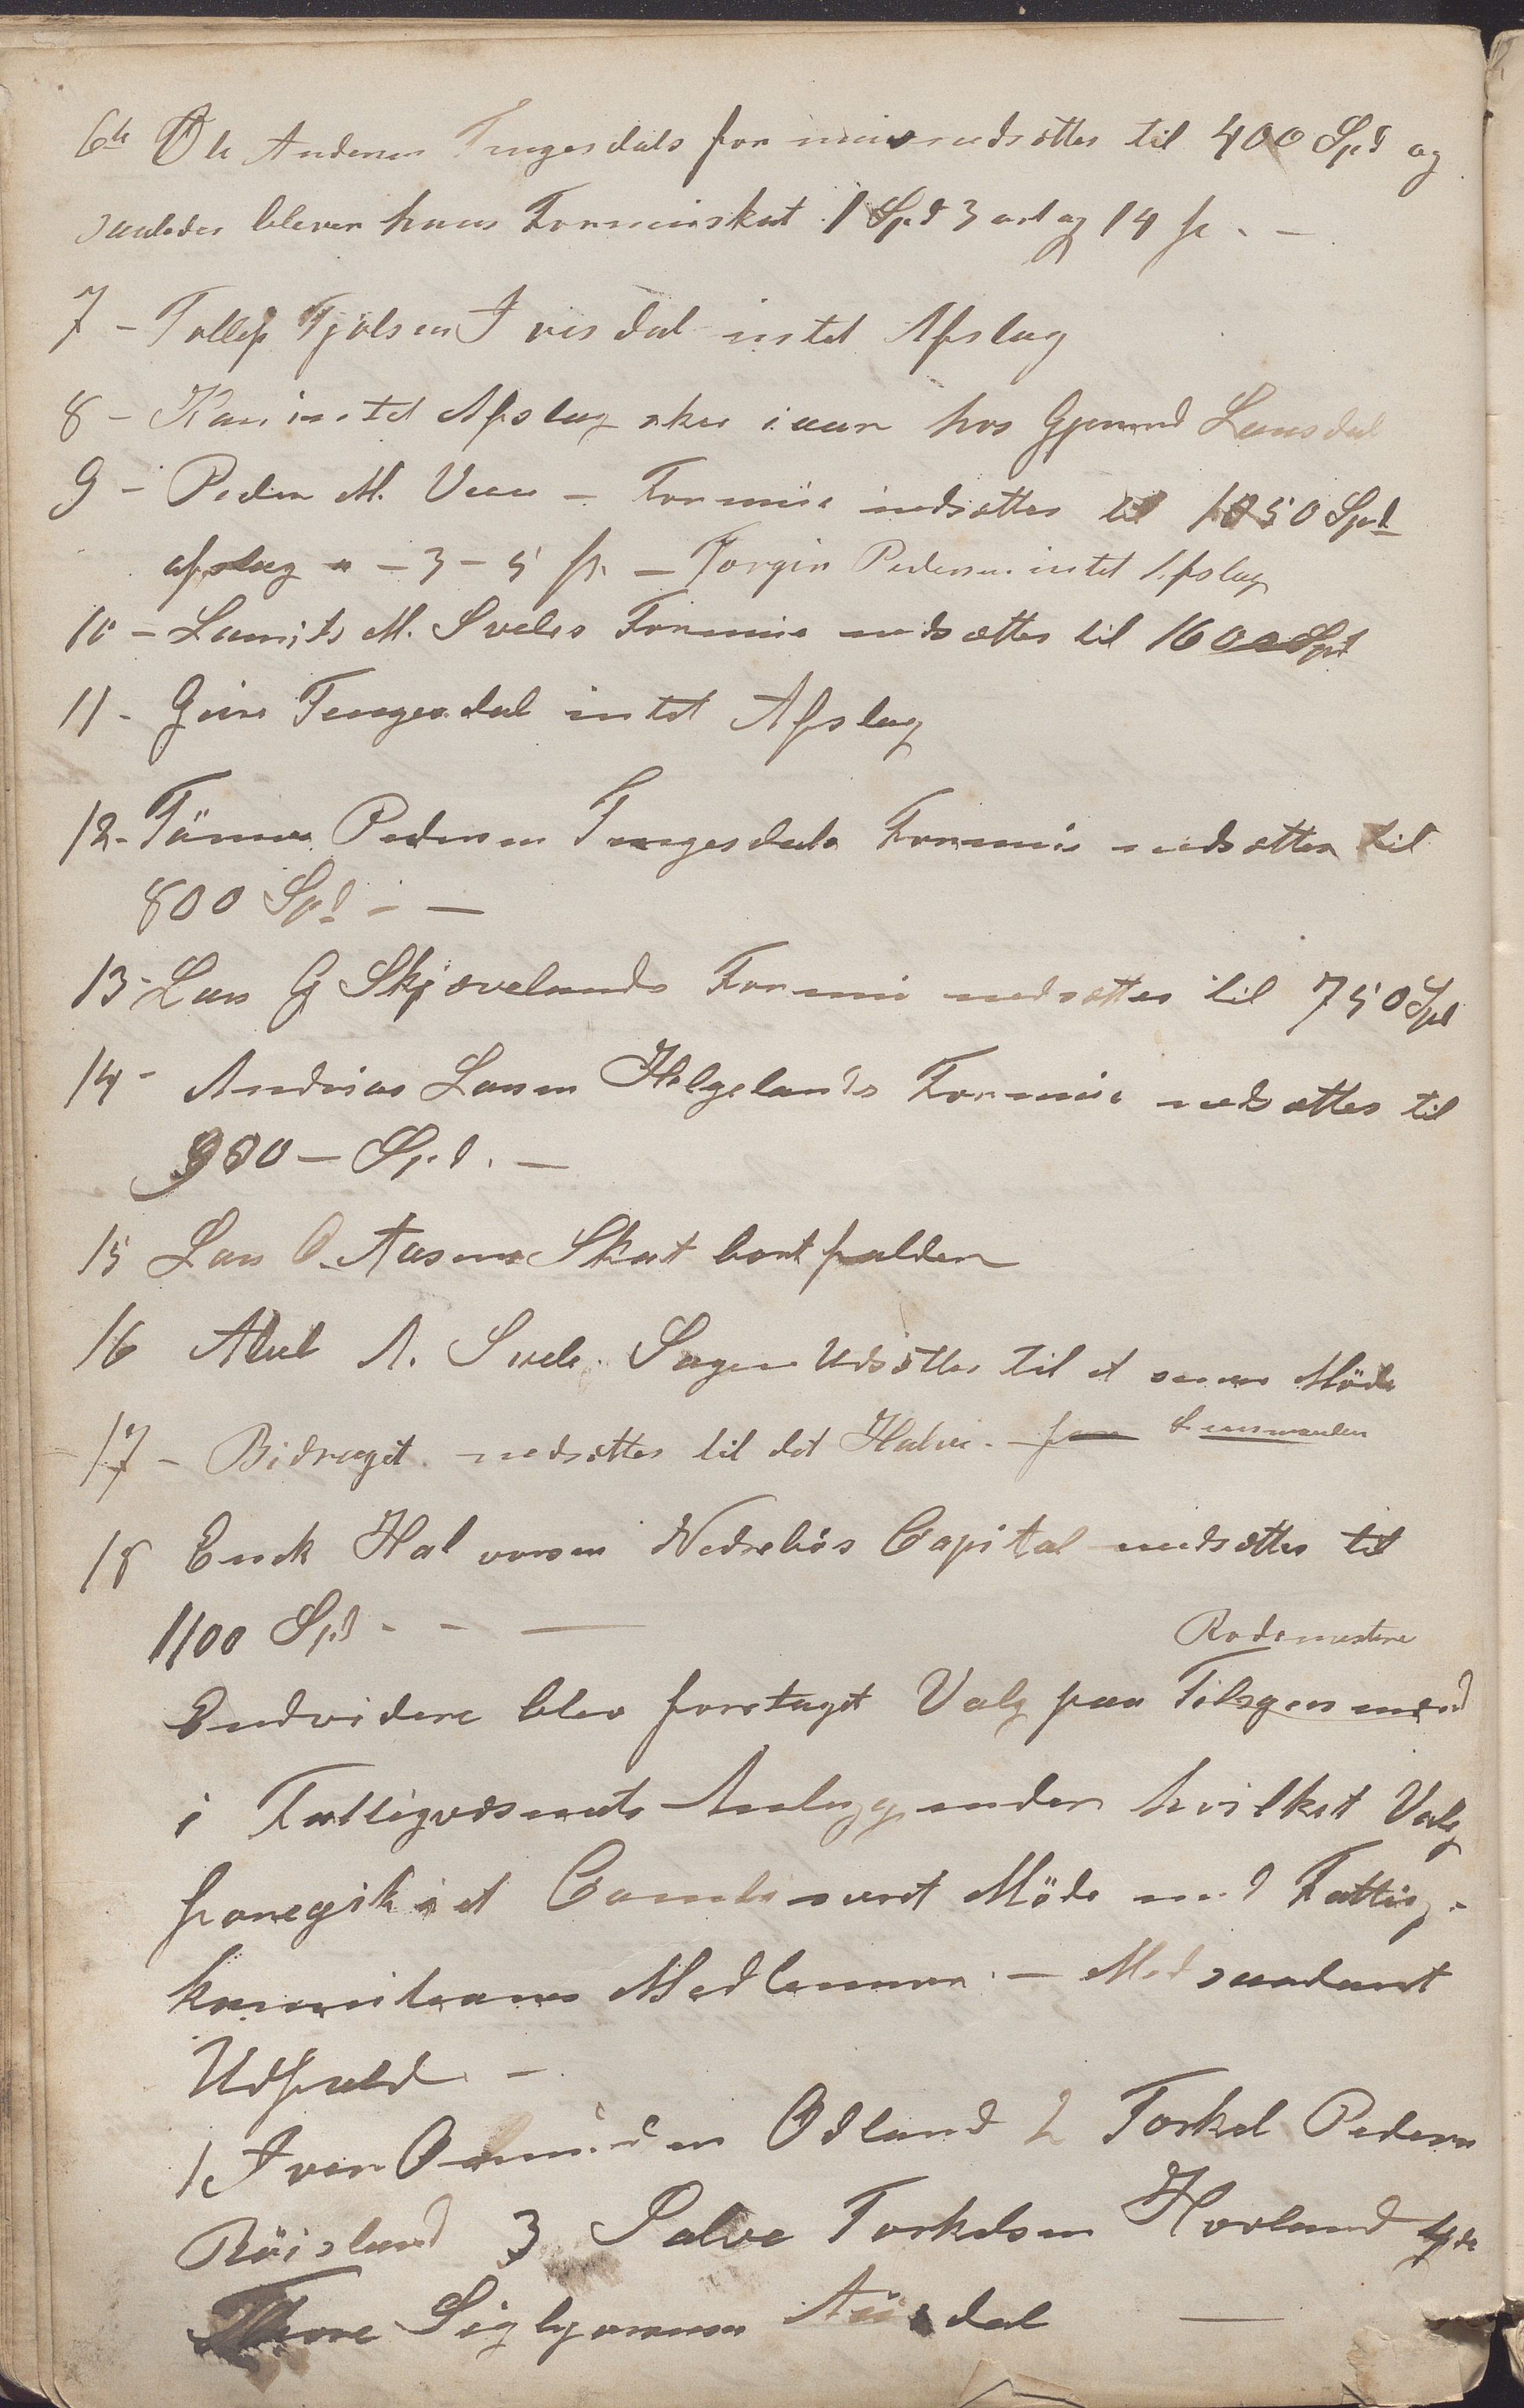 6te Ole Andersen Tengesdals formue nedsættes til 400 Spd og
saaledes bliver hans Formueskat 1 Spd 3 ort og 14 sk. –
7 – Tollef Tjølsen Ivesdal intet Afslag
8 – Kan intet Afslag skee iaar hos Gjermund Lunsdal
9 – Peder M. Veen – Formue nedsættes til 1050 Spd
afslag " – 3 – 5 sk. – Torgin Pedersen intet Afslag
10 – Lauritz M. Sveles Formue nedsættes til 1600 Spd
11 – Geir Tengesdal intet Afslag
12 – Tönnes Pedersen Tengesdals Formue nedsættes til
800 Spd – –
13 – Lars G Skjævelands Formue nedsættes til 750 Spd
14 – Andreas Larsen Helgelands Formue nedsættes til
900 – Spd. –
15 Lars O. Aasens Skat bortfalder
16 A. Svele. Sagen Udsættes til et senere Möde
17 – Bidraget nedsættes til det Halve. – for Lensmanden
18 Enok Halvorsen Nedrebös Capital nedsættes til
1100 Spd – – –
Rodemestere
Endvidere blev foretaget Valg paa Tilsynsmænd
i Fattigvæsenets Anliggender hvilket Valg
foregik i et Combineret Möde med Fattig-
kommisionens Medlemmer. – Med saadant
Udfald. –
1 Iver Osmundsen Ødland 2 Torkel Pedersen
Röisland 3 Salve Torkelsen Hovland 4de
Thore Sigbjørnsen Aüsdal –